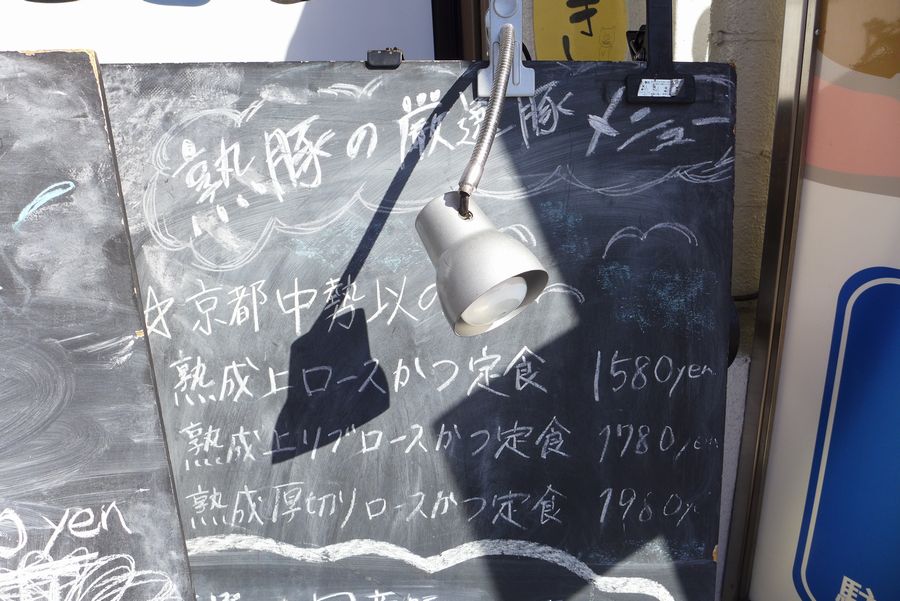 熟豚の厳選豚メニュー
☆京都中勢以の
熟成上ロースかつ定食 1580yen
熟成上リブロースかつ定食 1780yen
熟成厚切りロースかつ定食 1980y
0 yen